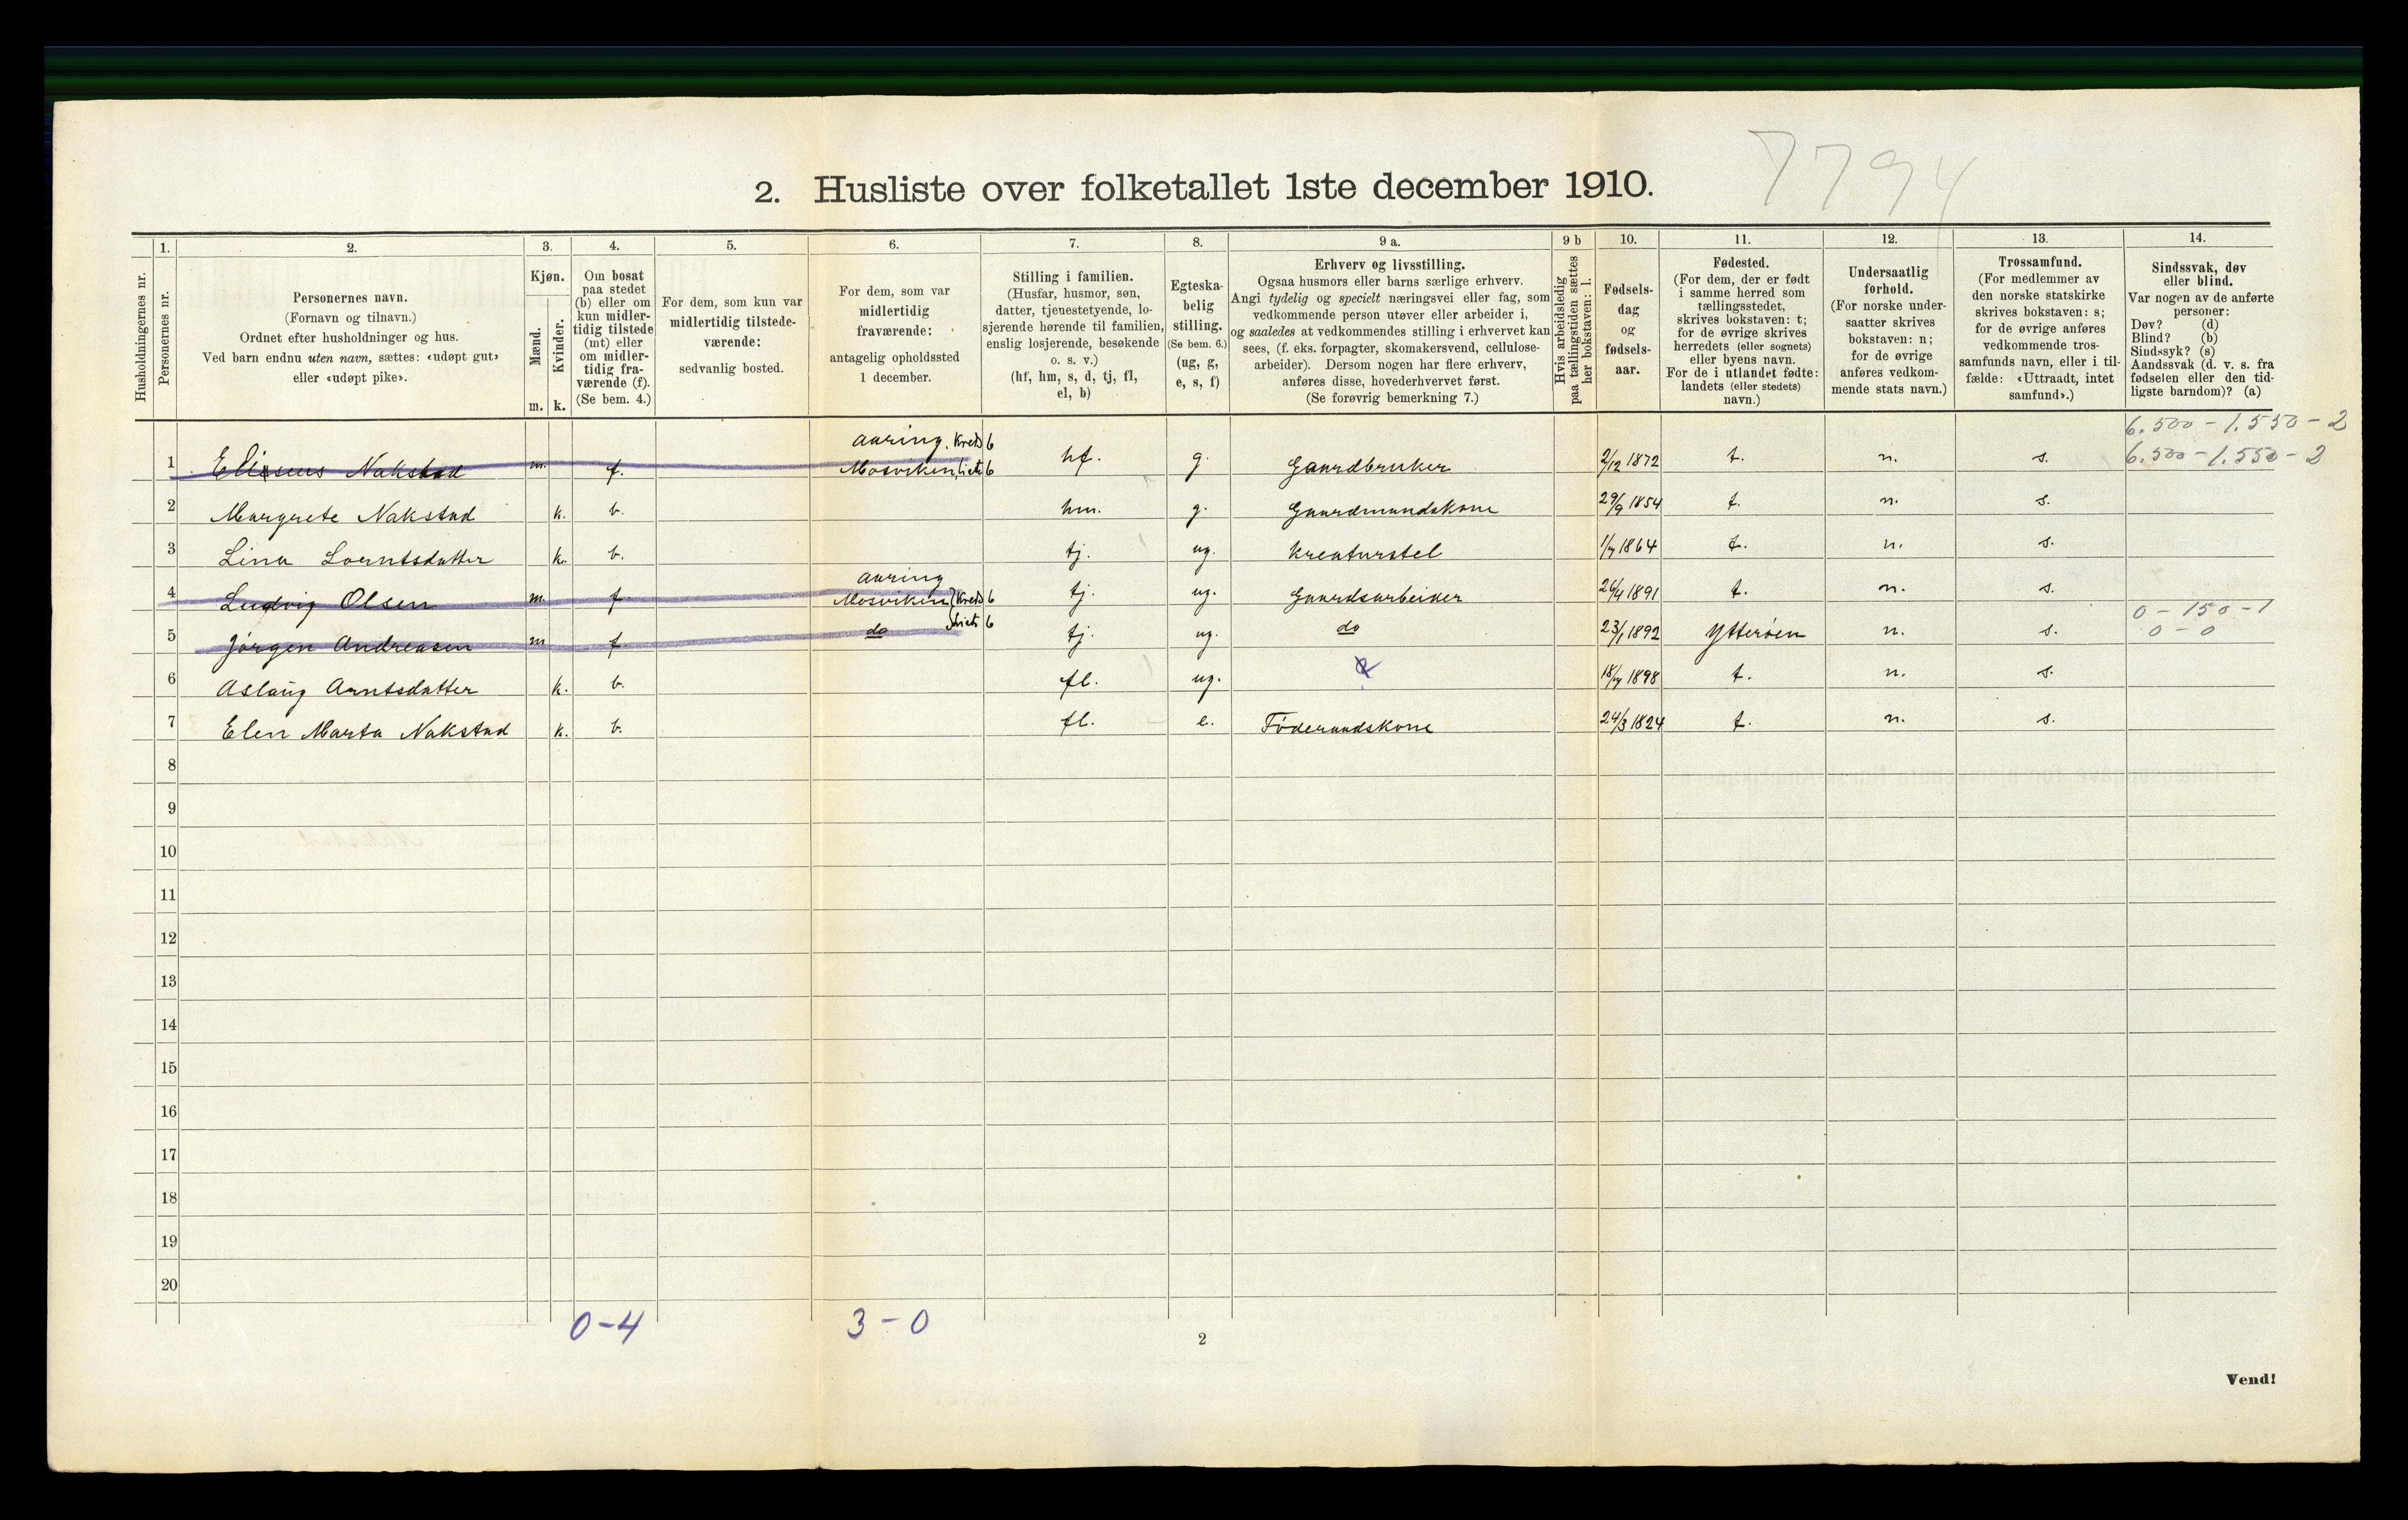 7794
2. Husliste over folketallet 1ste december 1910.
Husholdningernes nr.
1.
Personernes nr.
2.
Personernes navn.
(Fornavn og tilnavn.)
Ordnet efter husholdninger og hus.
Ved barn endnu uten navn, sættes: «udøpt gut»
eller «udøpt pike».
3.
Kjøn.
Mænd.
Kvinder.
m. k.
4.
Om bosat
paa stedet
(b) eller om
kun midler-
tidig tilstede
(mt) eller
om midler-
tidig fra-
værende (f).
(Se bem. 4.)
5.
For dem, som kun var
midlertidig tilstede-
værende:
sedvanlig bosted.
6.
For dem, som var
midlertidig
fraværende:
antagelig opholdssted
1 december.
7.
Stilling i familien.
(Husfar, husmor, søn,
datter, tjenestetyende, lo-
sjerende hørende til familien,
enslig losjerende, besøkende
o. s. v.)
(hf, hm, s, d, tj, fl,
el, b)
8.
Egteska-
belig
stilling.
(Se bem. 6.)
(ug, g,
e, s, f)
9 a.
Erhverv og livsstilling.
Ogsaa husmors eller barns særlige erhverv.
Angi tydelig og specielt næringsvei eller fag, som
vedkommende person utøver eller arbeider i,
og saaledes at vedkommendes stilling i erhvervet kan
sees, (f. eks. forpagter, skomakersvend, cellulose-
arbeider). Dersom nogen har flere erhverv,
anføres disse, hovederhvervet først.
(Se forøvrig bemerkning 7.)
9 b
Hvis arbeidsledig
paa tællingstiden sættes
her bokstaven: l.
10.
Fødsels-
dag
og
fødsels-
aar.
11.
Fødested.
(For dem, der er født
i samme herred som
tællingsstedet,
skrives bokstaven: t;
for de øvrige skrives
herredets (eller sognets)
eller byens navn.
For de i utlandet fødte:
landets (eller stedets)
navn.)
12.
Undersaatlig
forhold.
(For norske under-
saatter skrives
bokstaven: n;
for de øvrige
anføres vedkom-
mende stats navn.)
13.
Trossamfund.
(For medlemmer av
den norske statskirke
skrives bokstaven: s;
for de øvrige anføres
vedkommende tros-
samfunds navn, eller i til-
fælde: «Uttraadt, intet
samfund».)
14.
Sindssvak, døv
eller blind.
Var nogen av de anførte
personer:
Døv? (d)
Blind? (b)
Sindssyk? (s)
Aandssvak (d. v. s. fra
fødselen eller den tid-
ligste barndom)? (a)
6.500 - 1.550 - 2
aaring. Kreds 6
1 Eliseus Nakstad m. f. Mosviken, 6 hf. g. Gaardbruker 2/12 1872 t. n. s. 6.500 - 1.550 - 2
2 Margrete Nakstad k. b. hm. g. Gaardmandskone 29/9 1854 t. n. s.
3 Lina Lorntsdatter k. b. tj. ug. Kreaturstel 1/7 1864 t. n. s.
aaring
4 Ludvig Olsen m. f Mosviken Kreds 6 tj. ug. Gaardsarbeider 26/4 1891 t. n. s.
0 - 150 - 1
5 Jørgen Andreasen m f. do 6 tj. ug. do 23/1 1892 Ytterøen n. s. 0 - 0
6 Aslaug Arntsdatter k. b. fl. ug. 18/7 1898 t. n. s.
7 Elen Marta Nakstad k. b. fl. e. Føderaadskone 24/3 1824 t. n. s.
8
9
10
11
12
13
14
15
16
17
18
19
20
0-4 3-0
2
Vend!